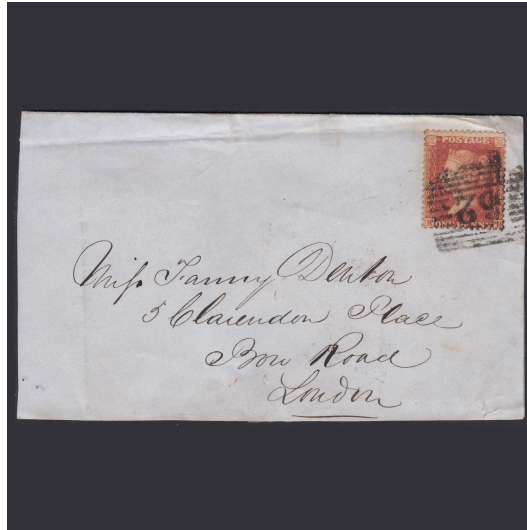 POSTAGE
Miss Fanny Denton
5 Clarendon Place
Bow Road
London